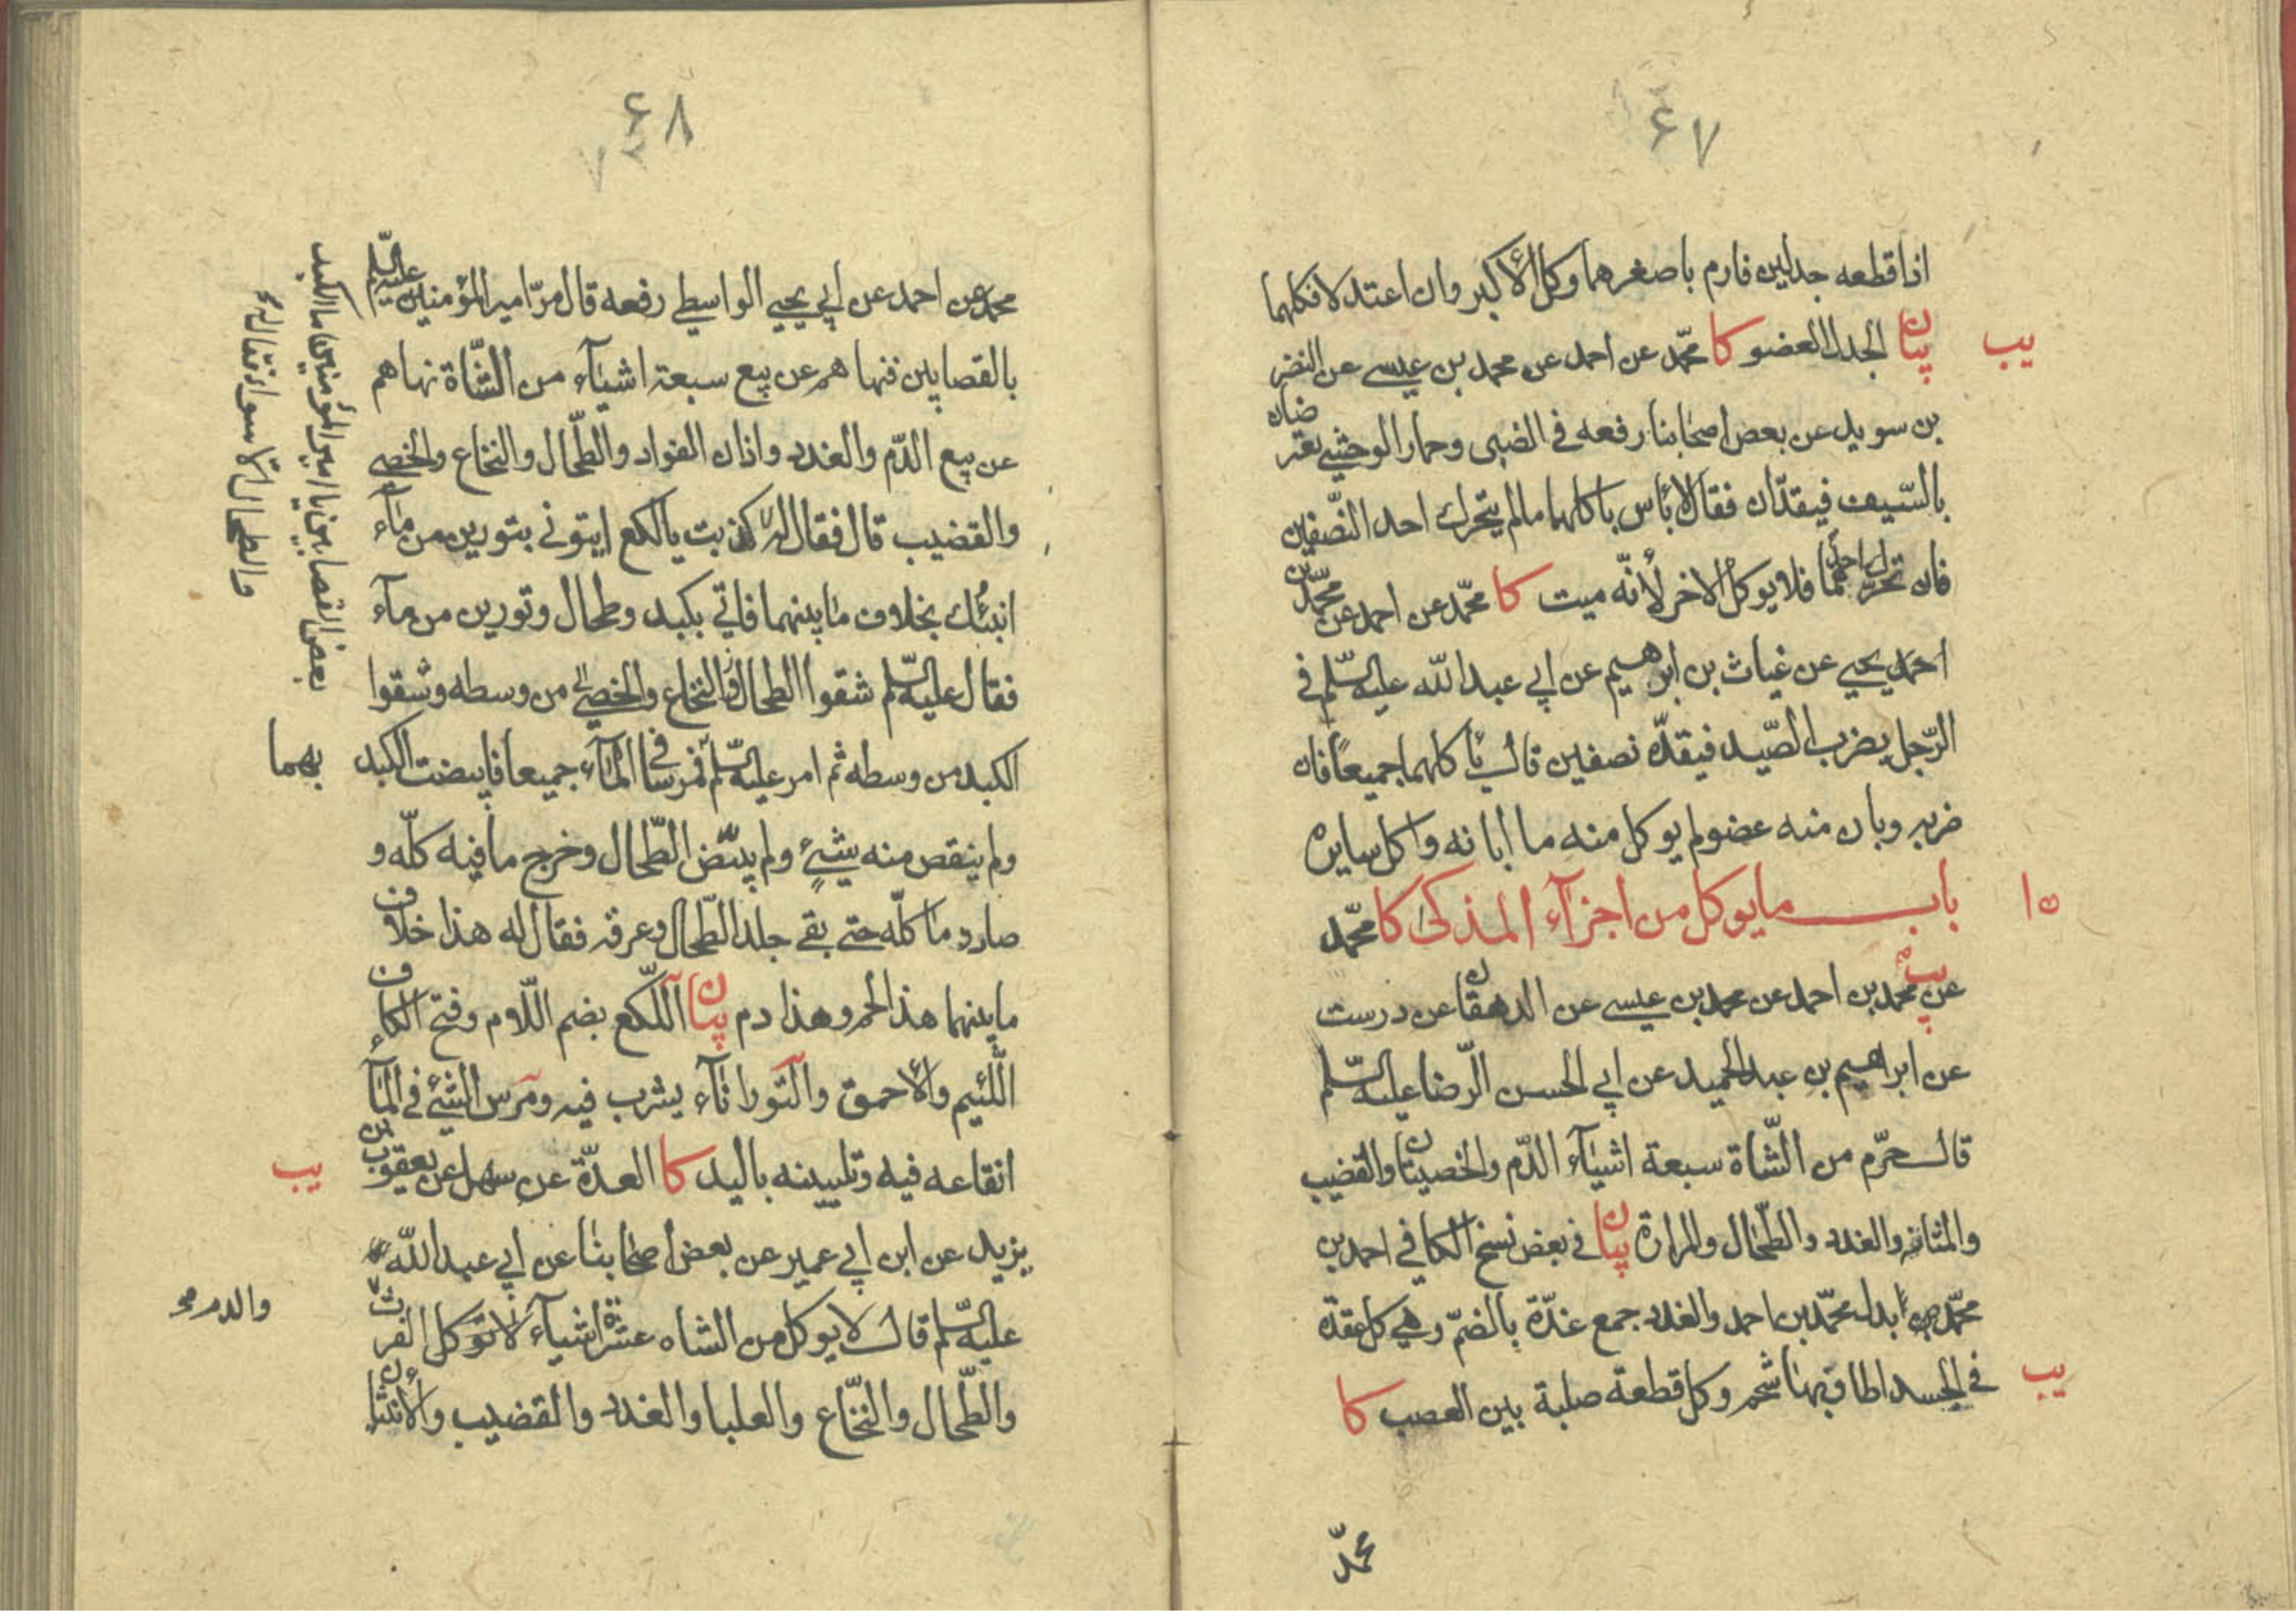 ۶۷
اذا قطعه جدلين فارم باصغرهما وكل الأكبر وان اعتدلا فكلهما
يب
بيان الجدل العضو كا محمّد عن احمد عن محمد بن عيسى عن النضر
بن سويد عن بعض اصحابنا رفعه في الضبي وحمار الوحشي يعترضان
بالسّيف فيقدّان فقال لا بأس باكلهما ما لم يتحرك احد النّصفين
فان تحرّك احدهما فلا يوكل الاخر لأنّه ميت كا محمّد عن احمد عن محمّد بن
احمد يحيى عن غياث بن ابرهيم عن ابي عبد الله عليه السّلم في
الرّجل يضرب الصّيد فيقدّه نصفين قال يأكلهما جميعاً فان
ضربه وبان منه عضو لم يوكل منه ما ابانه واكل سايره
۱۵
باب ما يوكل من اجزآء المذكى كا محمّد
يب
عن محمد بن احمد عن محمد بن عيسى عن الدهقان عن درست
عن ابراهيم بن عبد الحميد عن ابي الحسن الرّضا عليه السّلم
قال حرّم من الشّاة سبعة اشيآء الدّم والخصيتان والقضيب
والمثانه والغدد والطّحال والمرارة بيان في بعض نسخ الكافي احمد بن
محمّد بدل محمّد بن احمد والغدد جمع غدّة بالضمّ وهي كل عقدة
يب
في الجسد اطاف بها شحم وكل قطعة صلبة بين العصب كا
محمّد
۶۸
محمد عن احمد عن ابي يحيى الواسطي رفعه قال مرّ امير المؤمنين عليه السّلم
بالقصابين فنهاهم عن بيع سبعة اشيآء من الشّاة نهاهم
عن بيع الدّم والغدد واذان الفواد والطّحال والنخاع والخصى
والقضيب قال فقال له
بعض القصابين يا امير المؤمنين ما الكبد
والطحال الا سواء فقال له
كذبت يا لكع ايتوني بتورين من مآء
انبئك بخلاف ما بينهما فاتي بكبد وطحال وتورين من مآء
فقال عليه السّلم شقوا الطحال والنخاع والخصى من وسطه وشقوا
الكبد من وسطه ثم امر عليه السّلم
بهما
فمرسا في المآء جميعا فابيضت الكبد
ولم ينقص منه شيئ ولم يبيّض الطّحال وخرج ما فيه كلّه و
صار دما كلّه حتى بقي جلد الطّحال وعرقه فقال له هذا خلاف
ما بينهما هذا لحم وهذا دم بيان اللّكع بضم اللّام وفتح الكاف
اللّئيم والأحمق والتّور انآء يشرب فيه ومرس الشّئ في المآء
يب
انقاعه فيه وتليينه باليد كا العدّة عن سهل عن يعقوب بن
يزيد عن ابن ابي عمير عن بعض اصحابنا عن ابي عبد الله
عليه السّلم قال لا يوكل من الشاه عشرة اشيآء لا توكل الفرث
والدم
والطّحال والنّخاع والعلبا والغدد والقضيب والأنثيان